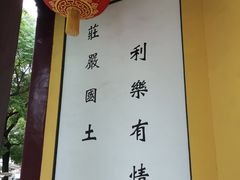 莊嚴國土
利樂有情